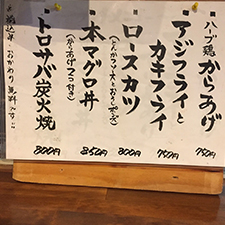 ハーブ鶏からあげ 750円
アジフライとカキフライ 750円
ロースカツ 800円
(とんかつソースorおろしポン酢)
本マグロ丼 850円
(からあげ2つ付き)
トロサバ炭火焼 800円
税込
おかわり無料です